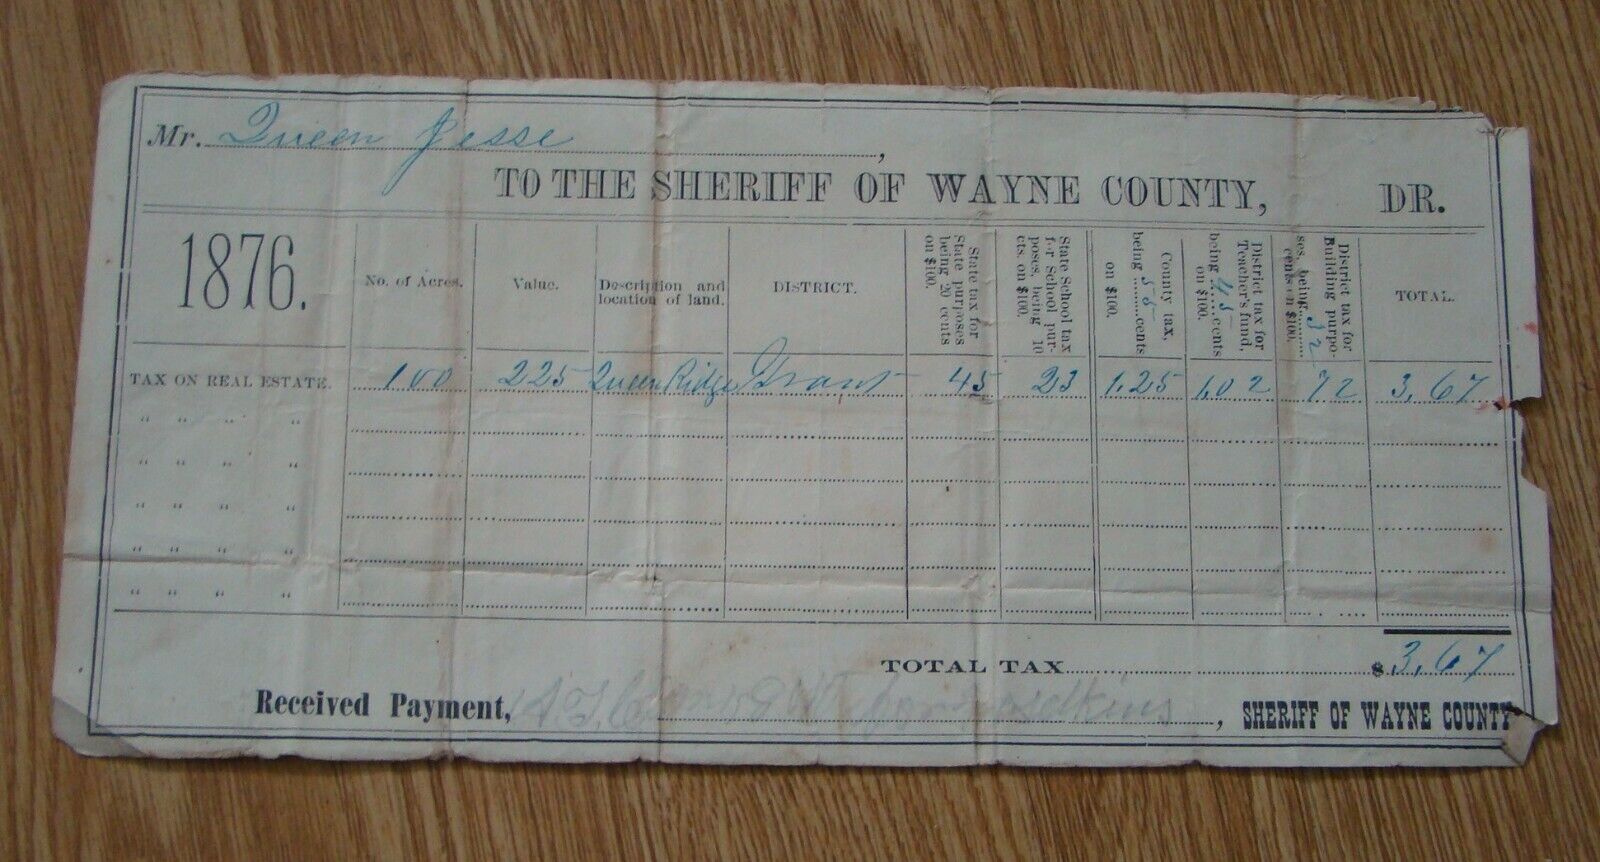 Mr. Queen Jesse,
TO THE SHERIFF OF WAYNE COUNTY, DR.
1876.
No. of Acres.
Value.
Description and
location of land.
DISTRICT.
State tax for
State purposes
being 20 cents
on $100.
State School tax
for School pur-
poses, being 10
cts. on $100.
County tax,
being 55 cents
on $100.
District tax for
Teacher's fund,
being 45 cents
on $100.
District tax for
Building purpo-
ses, being 32
cents on $100.
TOTAL.
TAX ON REAL ESTATE. 100 225 Queen Ridge Grant 45 23 1.25 1.02 72 3.67
“ “ “ “
“ “ “ “
“ “ “ “
“ “ “ “
“ “ “ “
TOTAL TAX $3.67
Received Payment, Adkins, SHERIFF OF WAYNE COUNTY